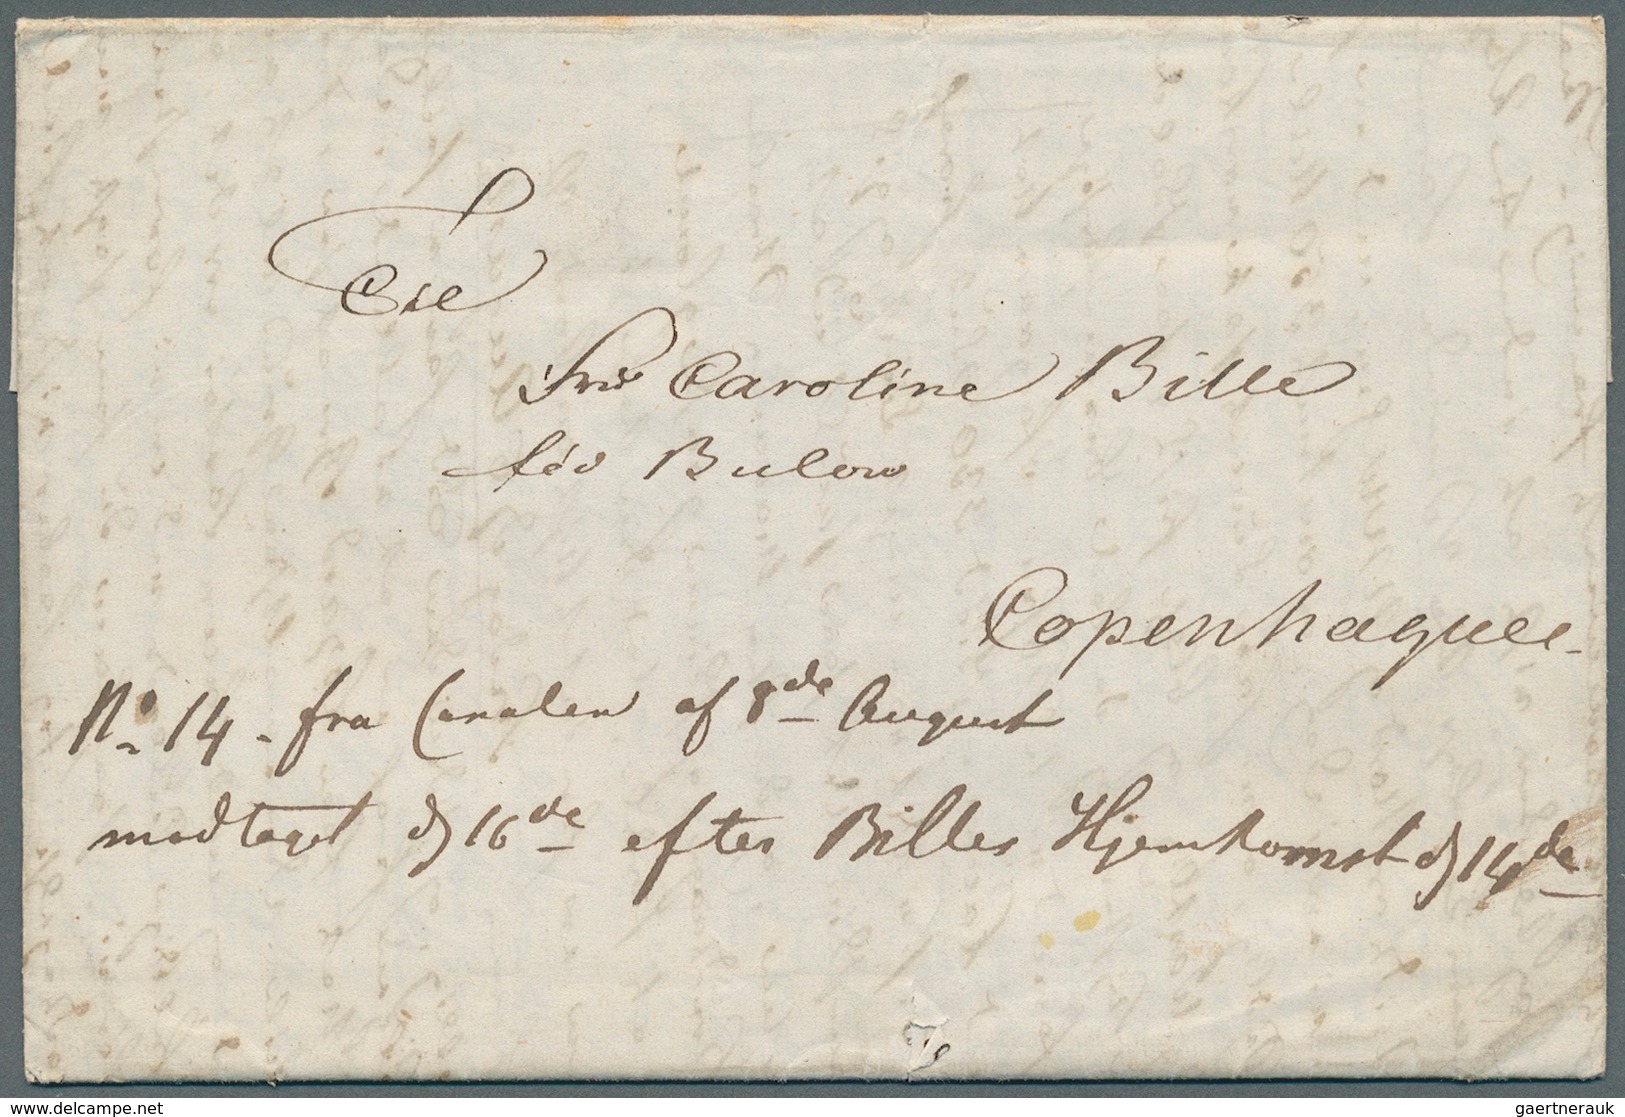 Frue Caroline Bille
fød Bulow
Copenhague
No 14 - fra Canalen af 8de August
modtaget d 16de efter Billes Hjemkomst d 14de
© picture-worlds.com
gaertnerauk